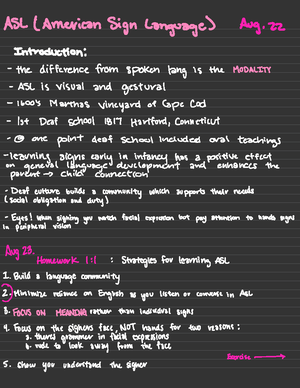 ASL (American Sign Language) Aug. 22
Introduction:
- the difference from spoken lang is the MODALITY
- ASL is visual and gestural
- 1600's Marthas vineyard of Cape Cod
- 1st Deaf school 1817 Hartford, Connecticut
- @ one point deaf school included oral teachings
- learning signs early in infancy has a positive effect
on general language development and enhances the
parent → child connection
- Deaf culture builds a community which supports their needs
(social obligation and duty)
- Eyes! When signing you watch facial expression but pay attention to hands signs
in peripheral vision
Aug 23.
Homework 1:1 : Strategies for learning ASL
1. Build a language community
2. Minimize reliance on English as you listen or converse in ASL
3. FOCUS ON MEANING rather than individual signs
4. Focus on the signers face, NOT hands for two reasons:
a. theres grammer in facial expressions
b. rude to look away from the face
Exercise →
5. Show you understand the signer